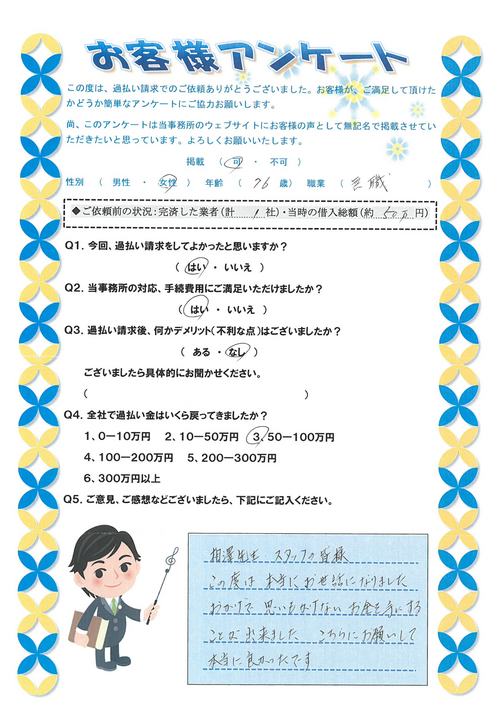 お客様アンケート
この度は、過払い請求でのご依頼ありがとうございました。お客様が、ご満足して頂けた
かどうか簡単なアンケートにご協力お願いします。
尚、このアンケートは当事務所のウェブサイトにお客様の声として無記名で掲載させてい
ただきたいと思っています。よろしくお願いいたします。
掲載 ( 可 ・ 不可 )
性別 ( 男性 ・ 女性 ) 年齢 ( 76 歳) 職業 ( 無職 )
◆ご依頼前の状況:完済した業者(計 1 社)・当時の借入総額(約 50万 円)
Q1. 今回、過払い請求をしてよかったと思いますか?
( はい ・ いいえ )
Q2. 当事務所の対応、手続費用にご満足いただけましたか?
( はい ・ いいえ )
Q3. 過払い請求後、何かデメリット(不利な点)はございましたか?
( ある ・ なし )
ございましたら具体的にお聞かせください。
( )
Q4. 全社で過払い金はいくら戻ってきましたか?
1、0―10万円 2、10―50万円 3、50―100万円
4、100―200万円 5、200―300万円
6、300万円以上
Q5. ご意見、ご感想などございましたら、下記にご記入ください。
相澤先生 スタッフの皆様
この度は 本当にお世話になりました
おかげで 思いもかけない お金を手にする
ことが 出来ました こちらにお願いして
本当に良かったです